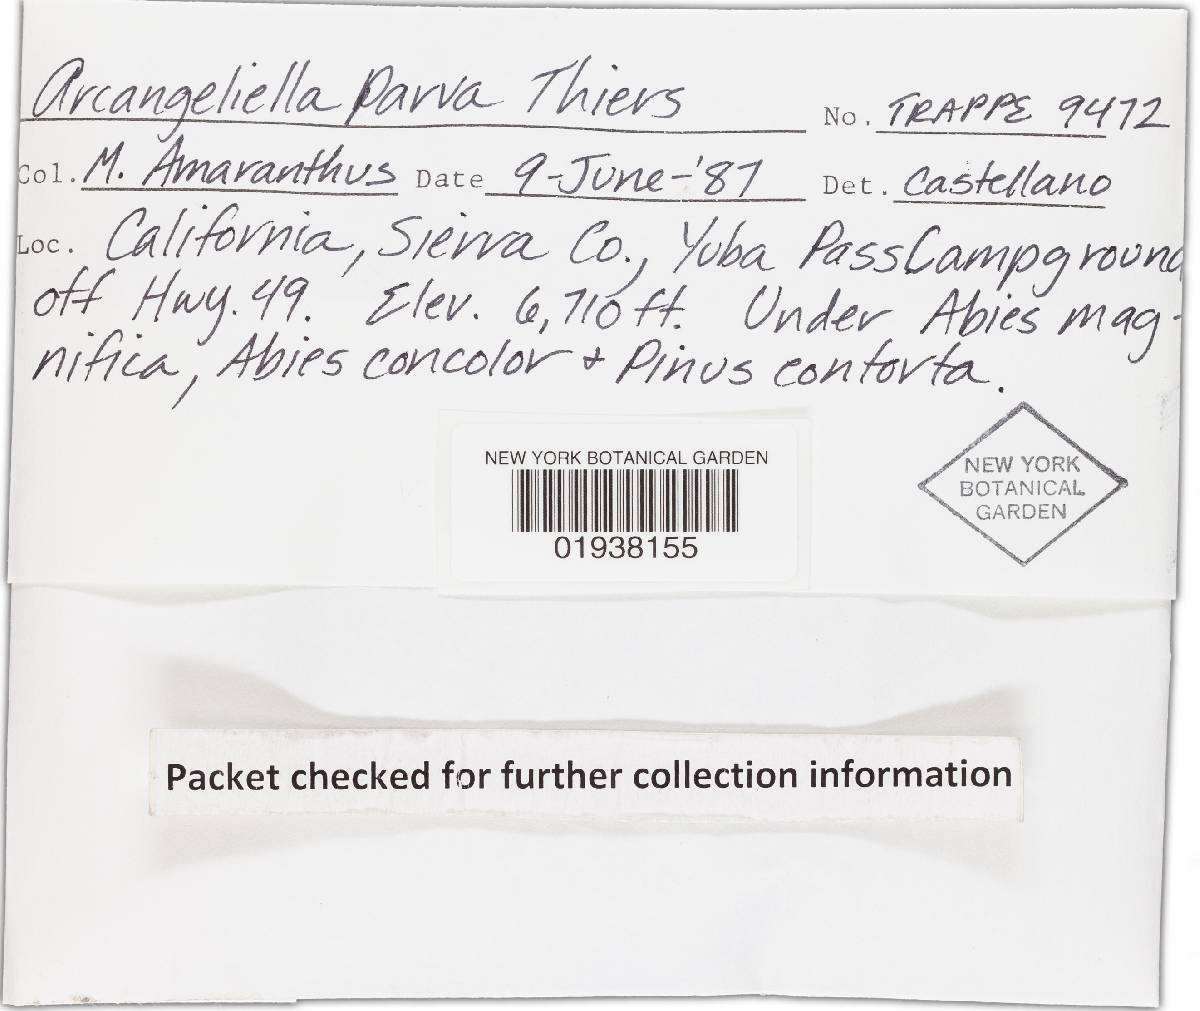 Arcangeliella parva Thiers No. TRAPPE 9472
Col. M. Amaranthus Date 9-June-'87 Det. Castellano
Loc. California, Sierra Co., Yuba Pass Campground
off Hwy. 49. Elev. 6,710 ft. Under Abies mag-
nifica, Abies concolor + Pinus contorta.
NEW YORK BOTANICAL GARDEN
01938155
NEW YORK
BOTANICAL
GARDEN
Packet checked for further collection information